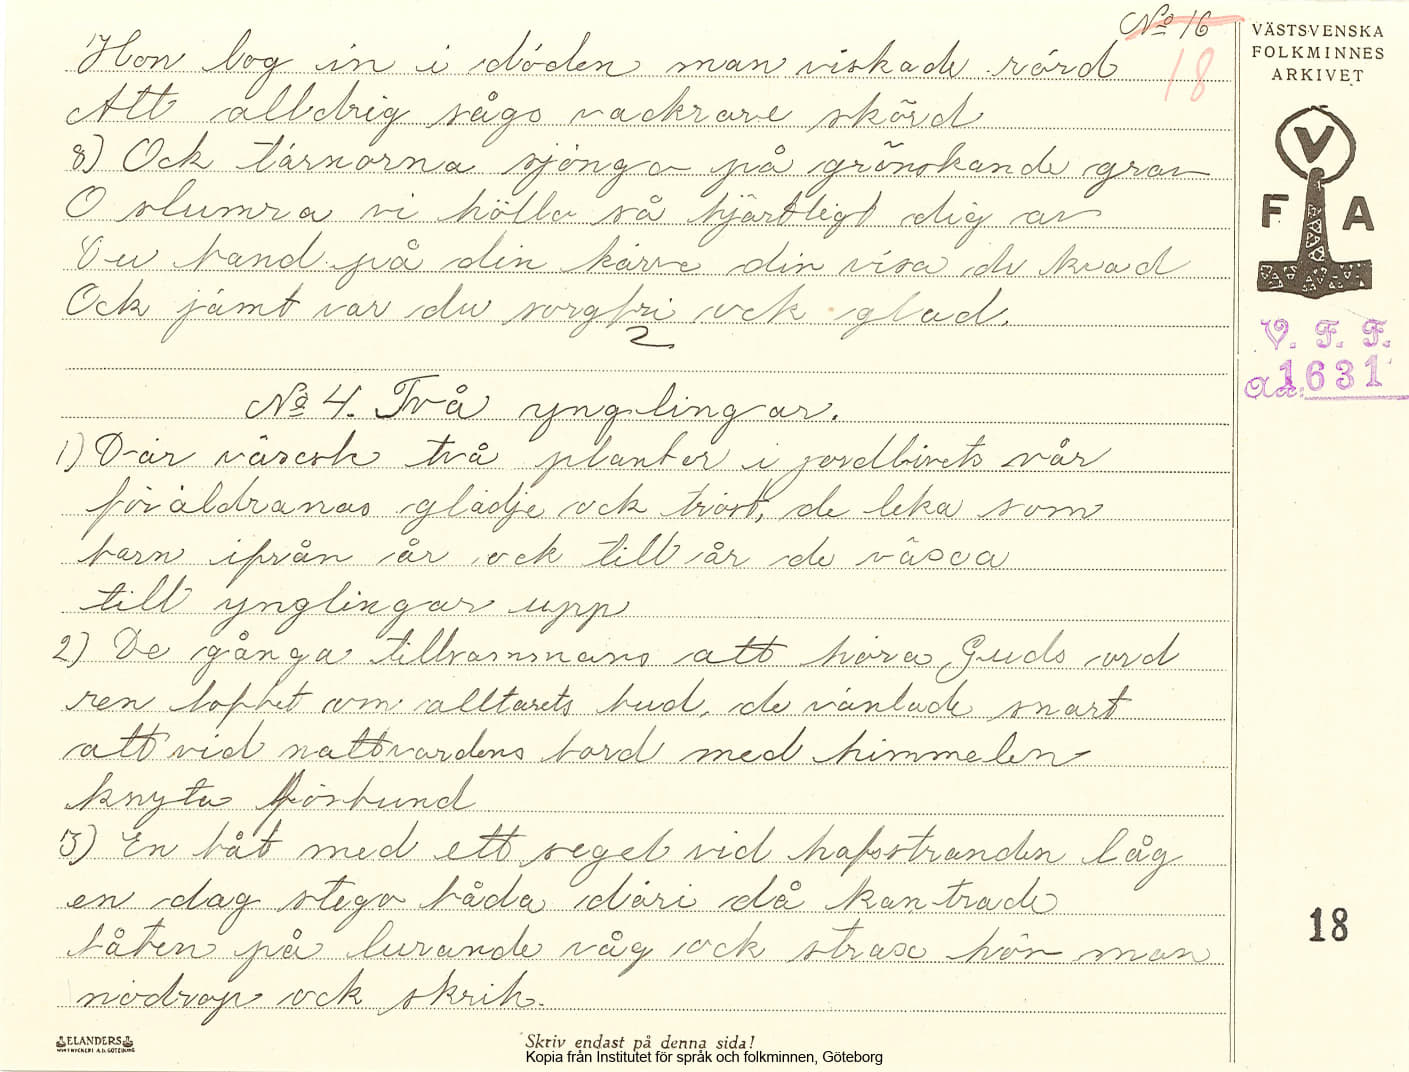 No 16
18
Hon log in i döden man viskade rörd
Att alldrig sågs vackrare skörd
8) Ock tärnorna sjönga på grönskande grav
O slumra vi hölla så hjärtligt dig av
Du band på din kärve din visa du kvad
Ock jämt var du sorgfri ock glad.
No 4. Två ynglingar.
1) Där växsh två planter i jordlivets vår
föräldranas glädje ock tröst, de leka som
barn ifrån år ock till år de växa
till ynglingar upp
2) De gånga tillsammans att höra Guds ord
ren loftet om alltarets bud, de väntade snart
att vid nattvardens bord med himmelen
knyta förbund
3) En båt med ett segel vid hafsstranden låg
en dag stego båda däri då kantrade
båten på lurande våg ock strax hör man
nödrop ock skrik.
VÄSTSVENSKA
FOLKMINNES
ARKIVET
V
F A
V. F. F.
1631
18
ELANDERS
Skriv endast på denna sida!
Kopia från Institutet för språk och folkminnen, Göteborg